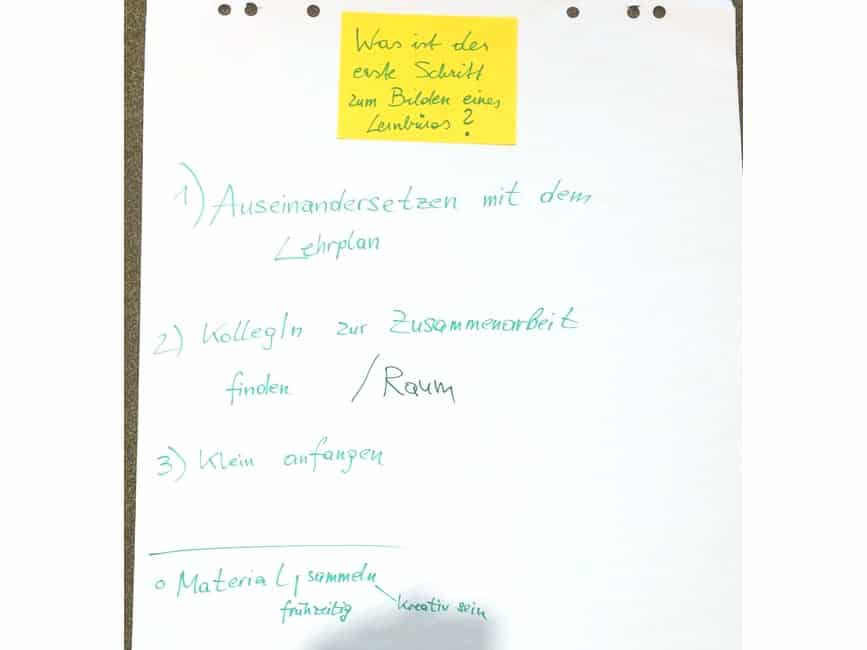 Was ist der
erste Schritt
zum Bilden eines
Lernbüros?
1) Auseinandersetzen mit dem
Lehrplan
2) KollegIn zur Zusammenarbeit
finden /Raum
3) Klein anfangen
o Material, sammeln
frühzeitig kreativ sein